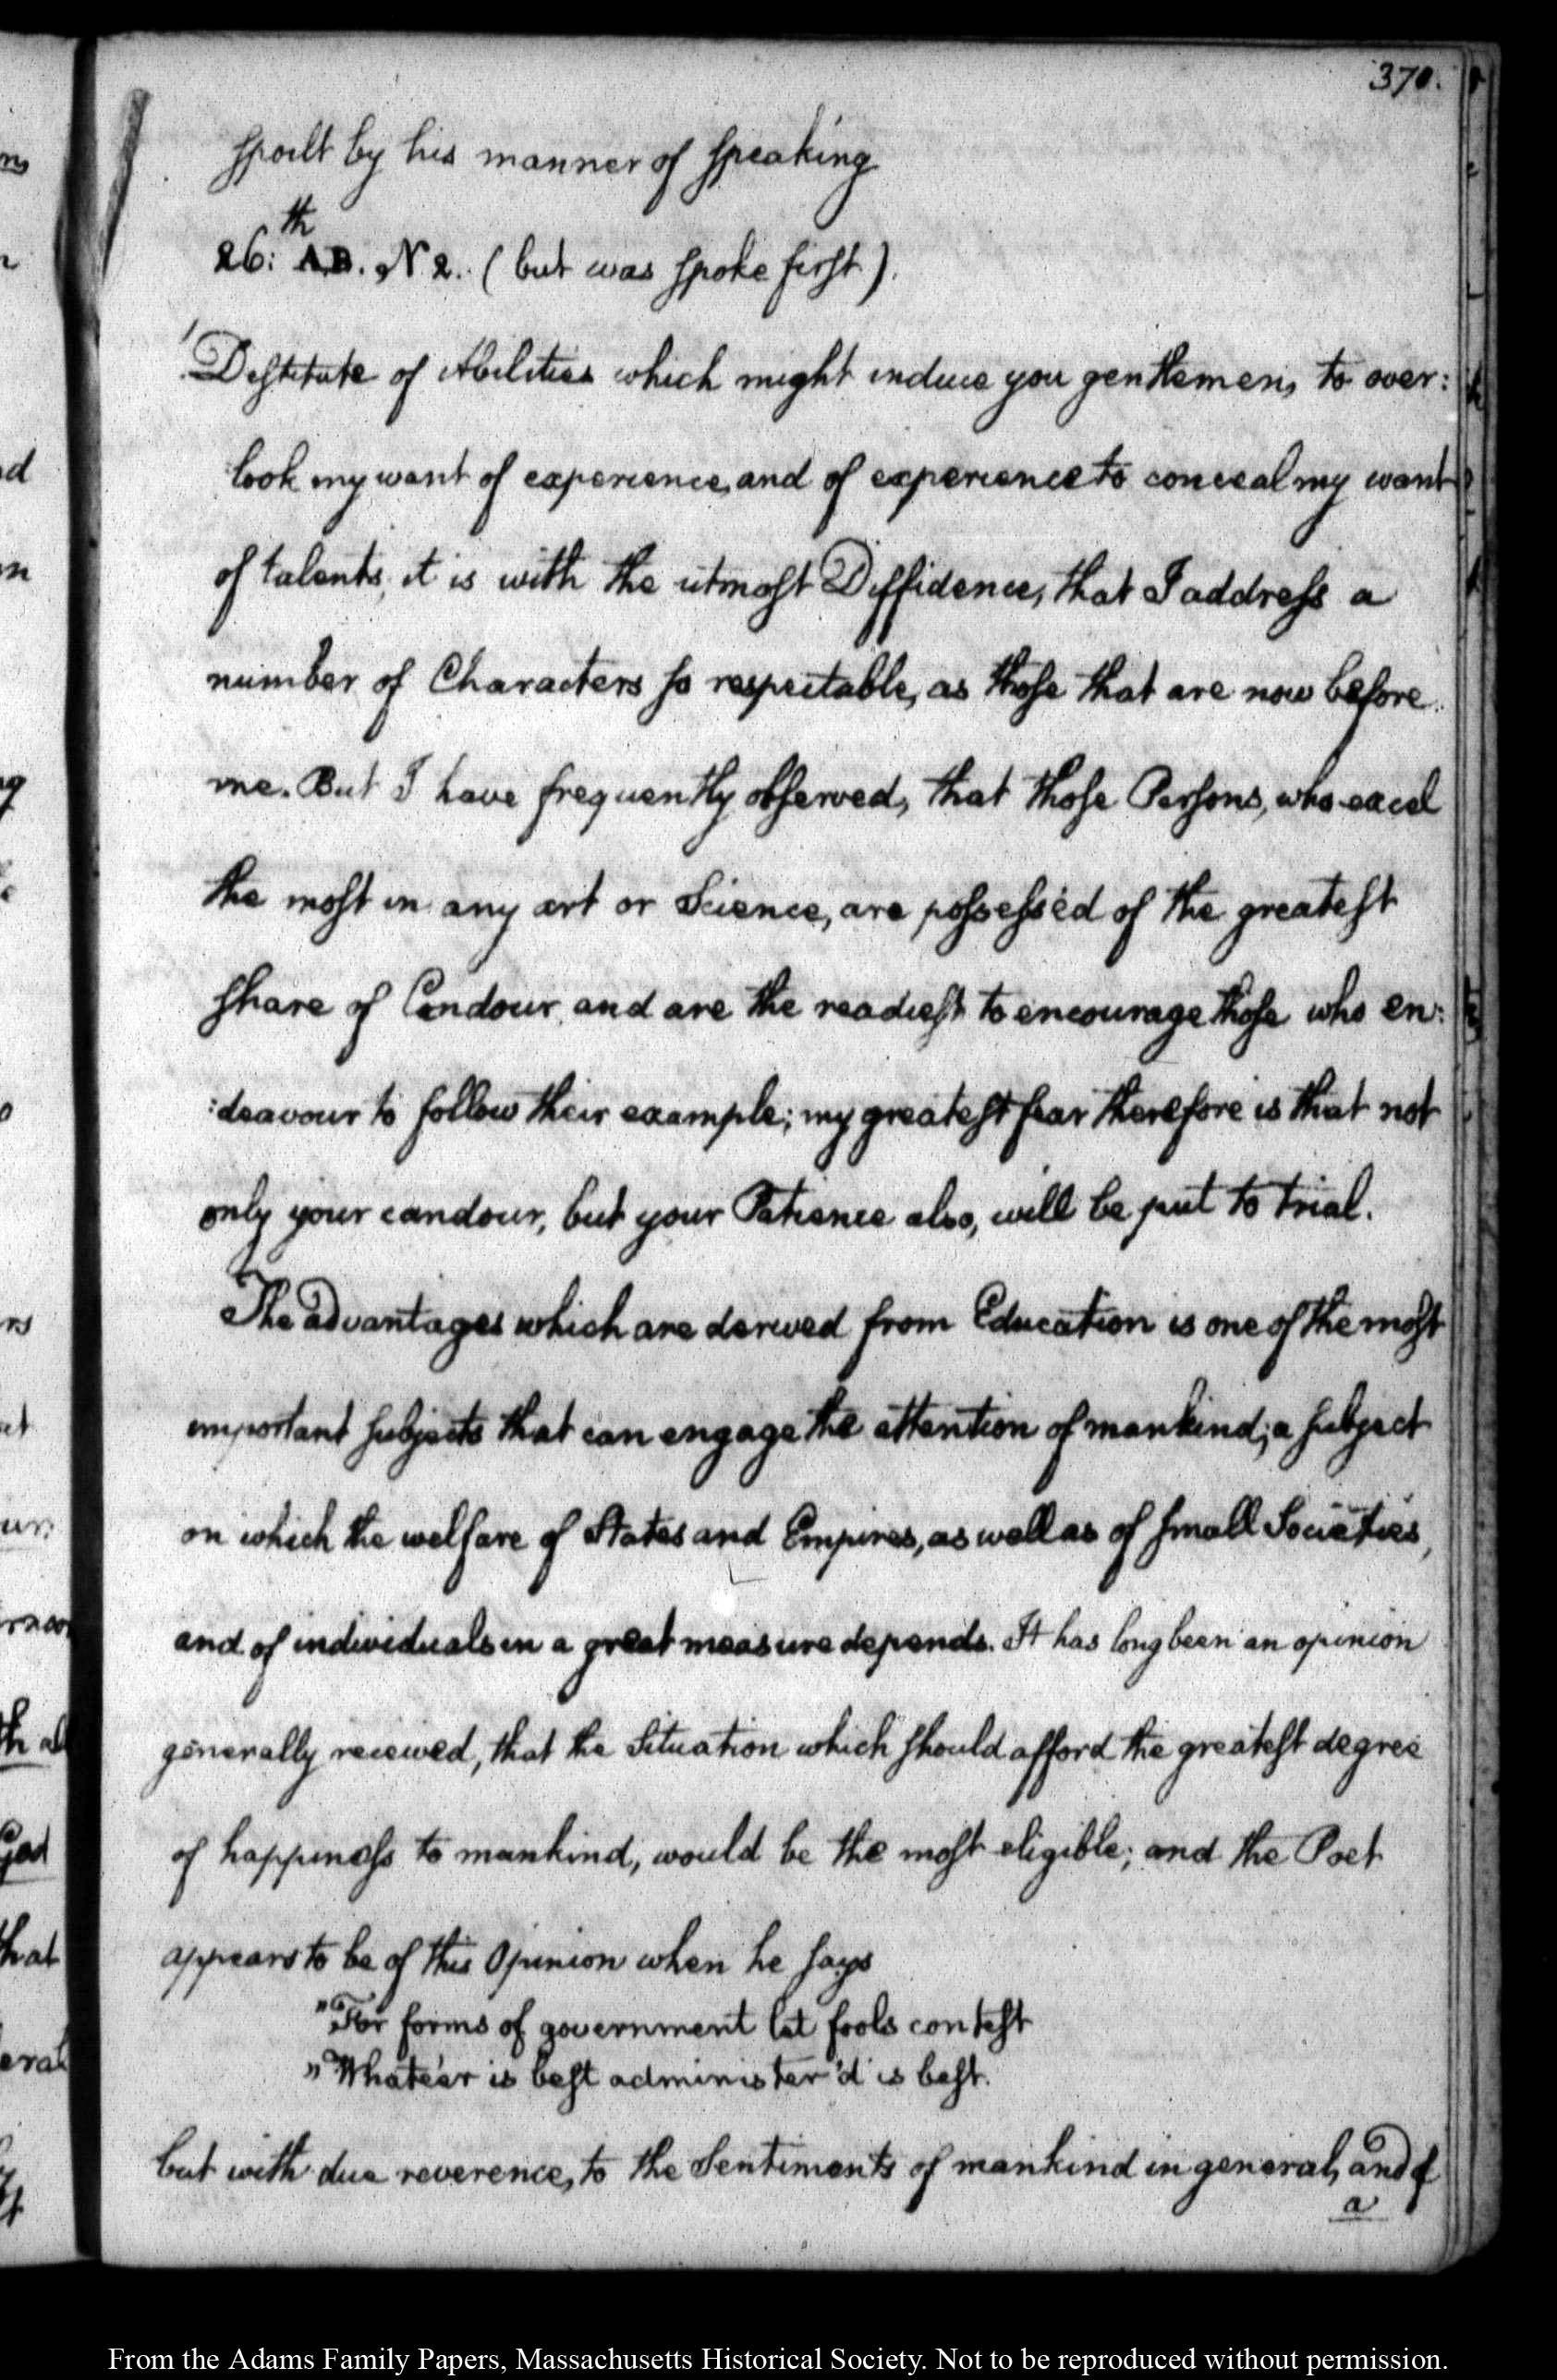 370.
spoilt by his manner of speaking
26:th AB. N 2. (but was spoke first).
Destitute of Abilities which might induce you gentlemen, to over:
look my want of experience, and of experience to conceal my want
of talents, it is with the utmost Diffidence, that I address a
number of Characters so respectable, as those that are now before
me. But I have frequently observed, that those Persons, who excel
the most in any art or Science, are possess'd of the greatest
share of Candour, and are the readiest to encourage those who en:
:deavour to follow their example; my greatest fear therefore is that not
only your candour, but your Patience also, will be put to trial.
The advantages which are derived from Education is one of the most
important subjects that can engage the attention of mankind; a subject
on which the welfare of States and Empires, as well as of small Societies,
and of individuals in a great measure depends. It has long been an opinion
generally received, that the Situation which should afford the greatest degree
of happiness to mankind, would be the most eligible; and the Poet
appears to be of this Opinion when he says
"For forms of government let fools contest
"Whate'er is best administer'd is best.
but with due reverence, to the Sentiments of mankind in general, and of
a
From the Adams Family Papers, Massachusetts Historical Society. Not to be reproduced without permission.